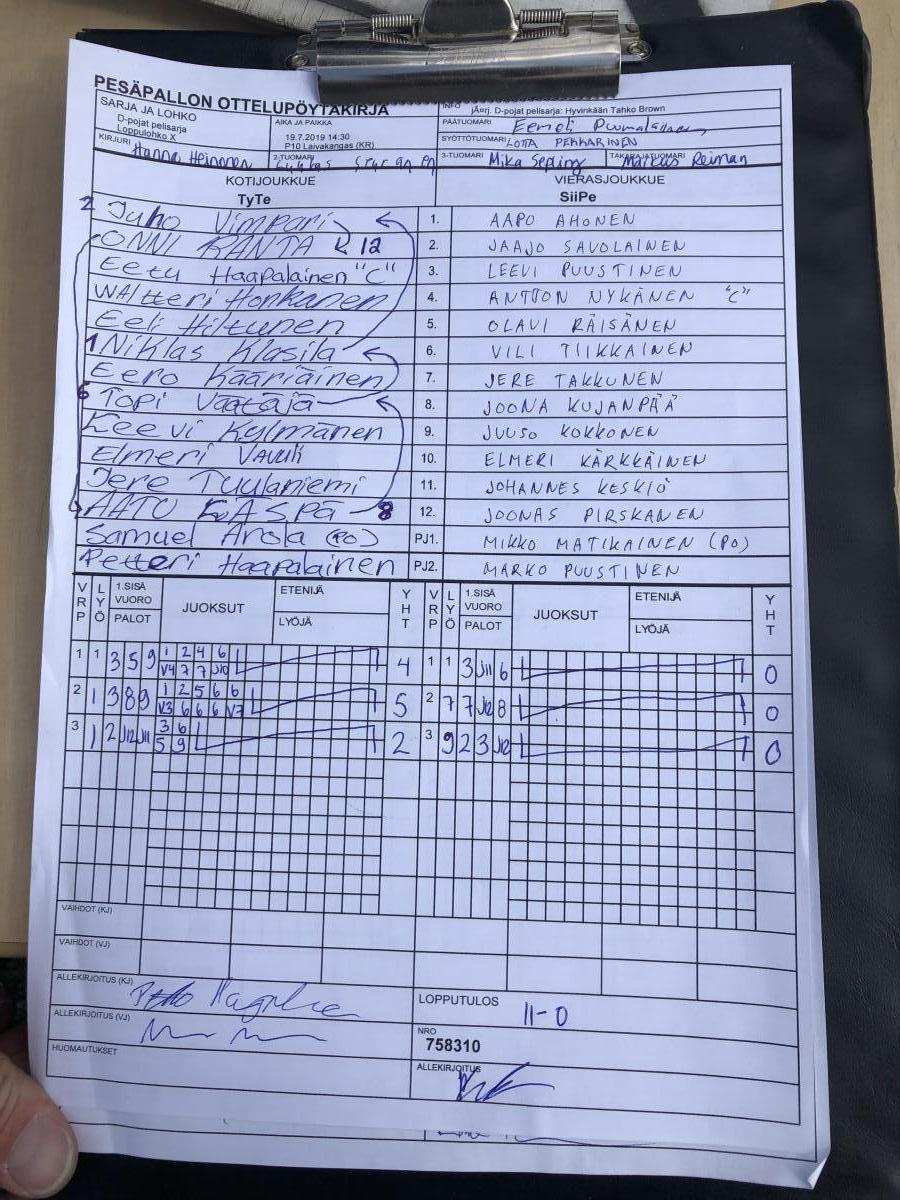 PESÄPALLON OTTELUPÖYTÄKIRJA
SARJA JA LOHKO
D-pojat pelisarja
Loppulohko X
AIKA JA PAIKKA
19.7.2019 14:30
P10 Laivakangas (KR)
INFO
jÃ¤rj. D-pojat pelisarja: Hyvinkään Tahko Brown
PÄÄTUOMARI Eemeli
SYÖTTÖTUOMARI LOTTA PEKKARINEN
KIRJURI Hanna Heinonen
2-TUOMARI
3-TUOMARI Mika
TAKARAJATUOMARI Markus Reiman
KOTIJOUKKUE VIERASJOUKKUE
TyTe SiiPe
2 Juho Vimpari 1. AAPO AHONEN
ONNI RANTA 12 2. JAAJO SAVOLAINEN
Eetu Haapalainen "C" 3. LEEVI PUUSTINEN
Waltteri Honkanen 4. ANTTON NYKÄNEN "C"
Eeli Hiltunen 5. OLAVI RÄISÄNEN
1 Niklas Klasila 6. VILI TIIKKAINEN
Eero Kääriäinen 7. JERE TAKKUNEN
6 Topi Väätäjä 8. JOONA KUJANPÄÄ
Keevi Kylmänen 9. JUUSO KOKKONEN
Elmeri 10. ELMERI KÄRKKÄINEN
Jere Tuulaniemi 11. JOHANNES KESKIÖ
AATU 8 12. JOONAS PIRSKANEN
Samuel Arola (PO) PJ1. MIKKO MATIKAINEN (PO)
Petteri Haapalainen PJ2. MARKO PUUSTINEN
VRP LYÖ 1.SISÄ VUORO PALOT JUOKSUT ETENIJÄ LYÖJÄ YHT VRP LYÖ 1.SISÄ VUORO PALOT JUOKSUT ETENIJÄ LYÖJÄ YHT
1 1 3 5 9 1 2 4 6 4 1 1 3 J11 6 0
V4 7 7 J10
2 1 3 8 9 1 2 5 6 6 5 2 7 7 J12 8 0
V3 6 6 6 V7
3 1 2 J12 J11 3 6 2 3 9 2 3 J12 0
5 9
VAIHDOT (KJ)
VAIHDOT (VJ)
ALLEKIRJOITUS (KJ)
LOPPUTULOS 11-0
ALLEKIRJOITUS (VJ)
NRO
758310
HUOMAUTUKSET
ALLEKIRJOITUS